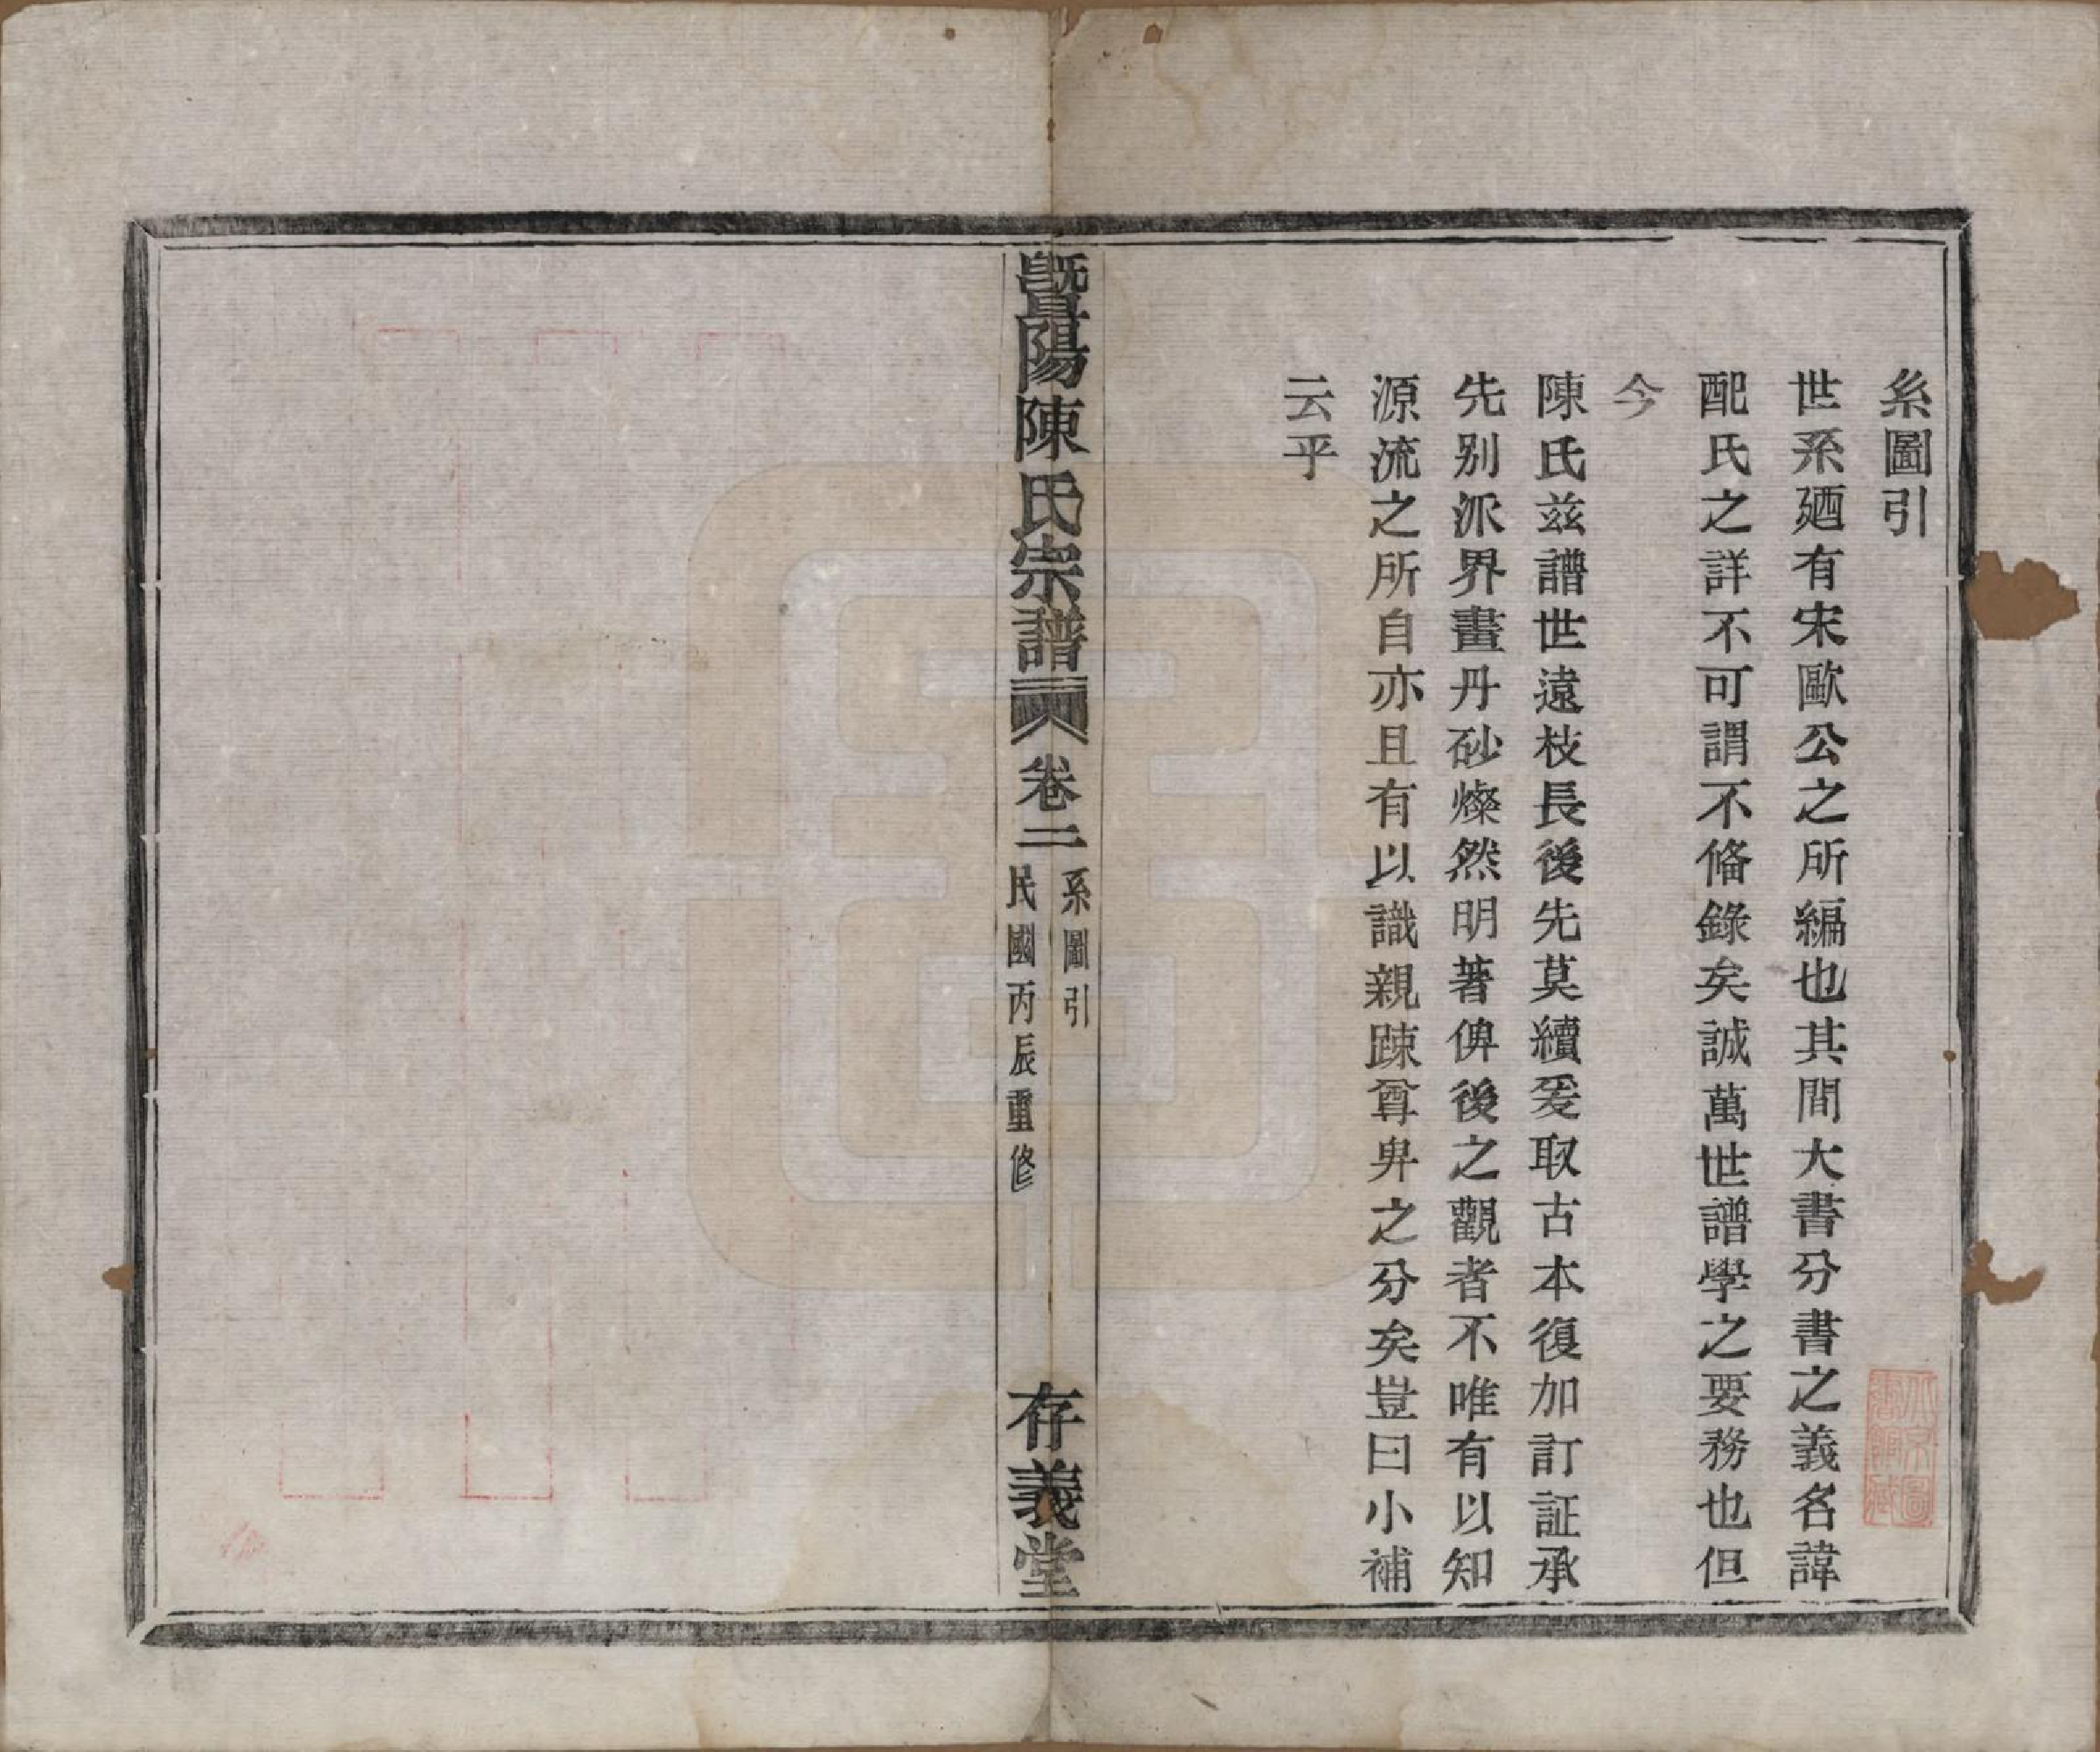 糸圖引
世系廼有宋歐公之所編也其間大書分書之義名諱
配氏之詳不可謂不俻錄矣誠萬世譜學之要務也但
今
陳氏兹譜世遠枝長後先莫續爰取古本復加訂証承
先别派界畫丹砂燦然明著俾後之觀者不唯有以知
源流之所自亦且有以識親踈尊卑之分矣豈曰小補
云乎
暨陽陳氏宗譜
卷二
系圖引
民國丙辰重修
存義堂